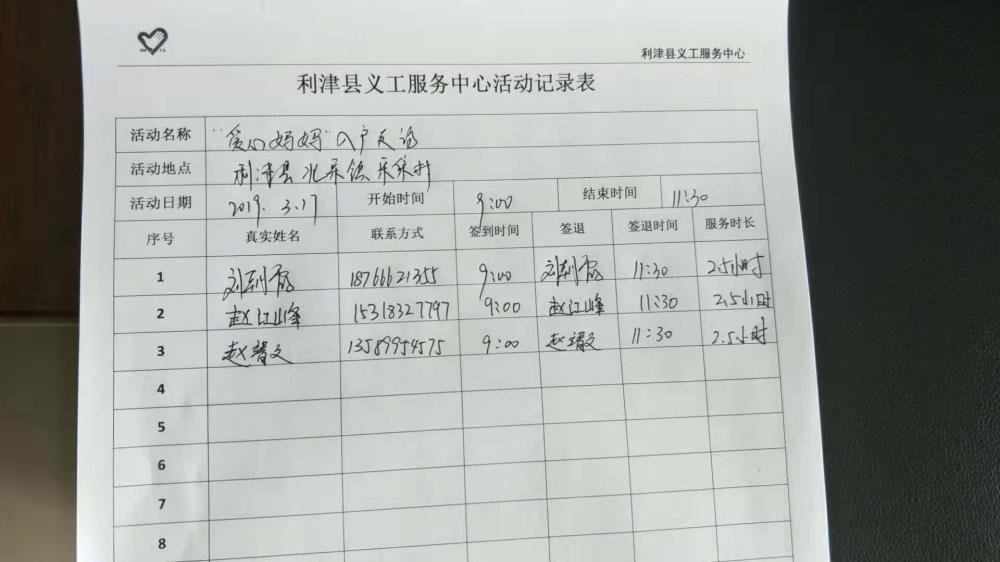 利津县义工服务中心
利津县义工服务中心活动记录表
活动名称 "爱心妈妈"入户走访
活动地点 利津县北宋镇
活动日期 2019.3.17 开始时间 9:00 结束时间 11:30
序号 真实姓名 联系方式 签到时间 签退 签退时间 服务时长
1 18766621355 9:00 11:30 2.5小时
2 赵江峰 15318327797 9:00 赵江峰 11:30 2.5小时
3 13589954575 9:00 11:30 2.5小时
4
5
6
7
8